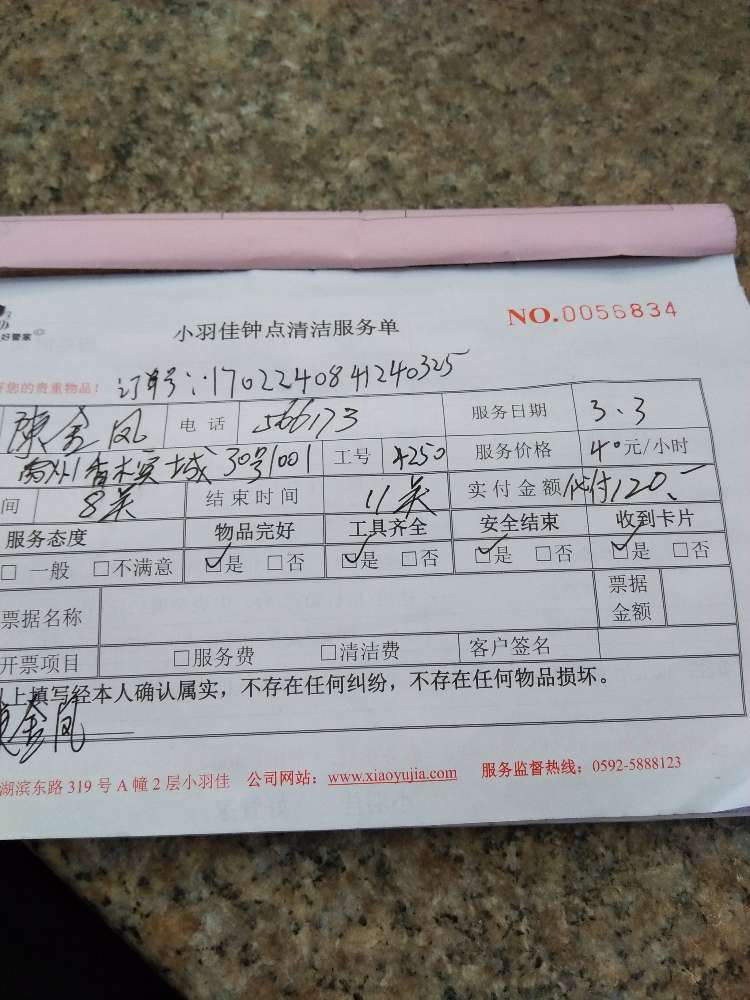 好管家
小羽佳钟点清洁服务单
NO.0056834
您的贵重物品!
订单号:1702240841240325
陈金凤 电话 566173 服务日期 3、3
30号1001 工号 4250 服务价格 40元/小时
间 8 结束时间 11 实付金额 付120.-
服务态度 物品完好 工具齐全 安全结束 收到卡片
□ 一般 □不满意 ☑是 □否 ☑是 □否 ☑是 □否 ☑是 □否
票据名称 票据金额
开票项目 □服务费 □清洁费 客户签名
上填写经本人确认属实,不存在任何纠纷,不存在任何物品损坏。
金凤
湖滨东路 319 号 A 幢 2 层小羽佳 公司网站:www.xiaoyujia.com 服务监督热线:0592-5888123